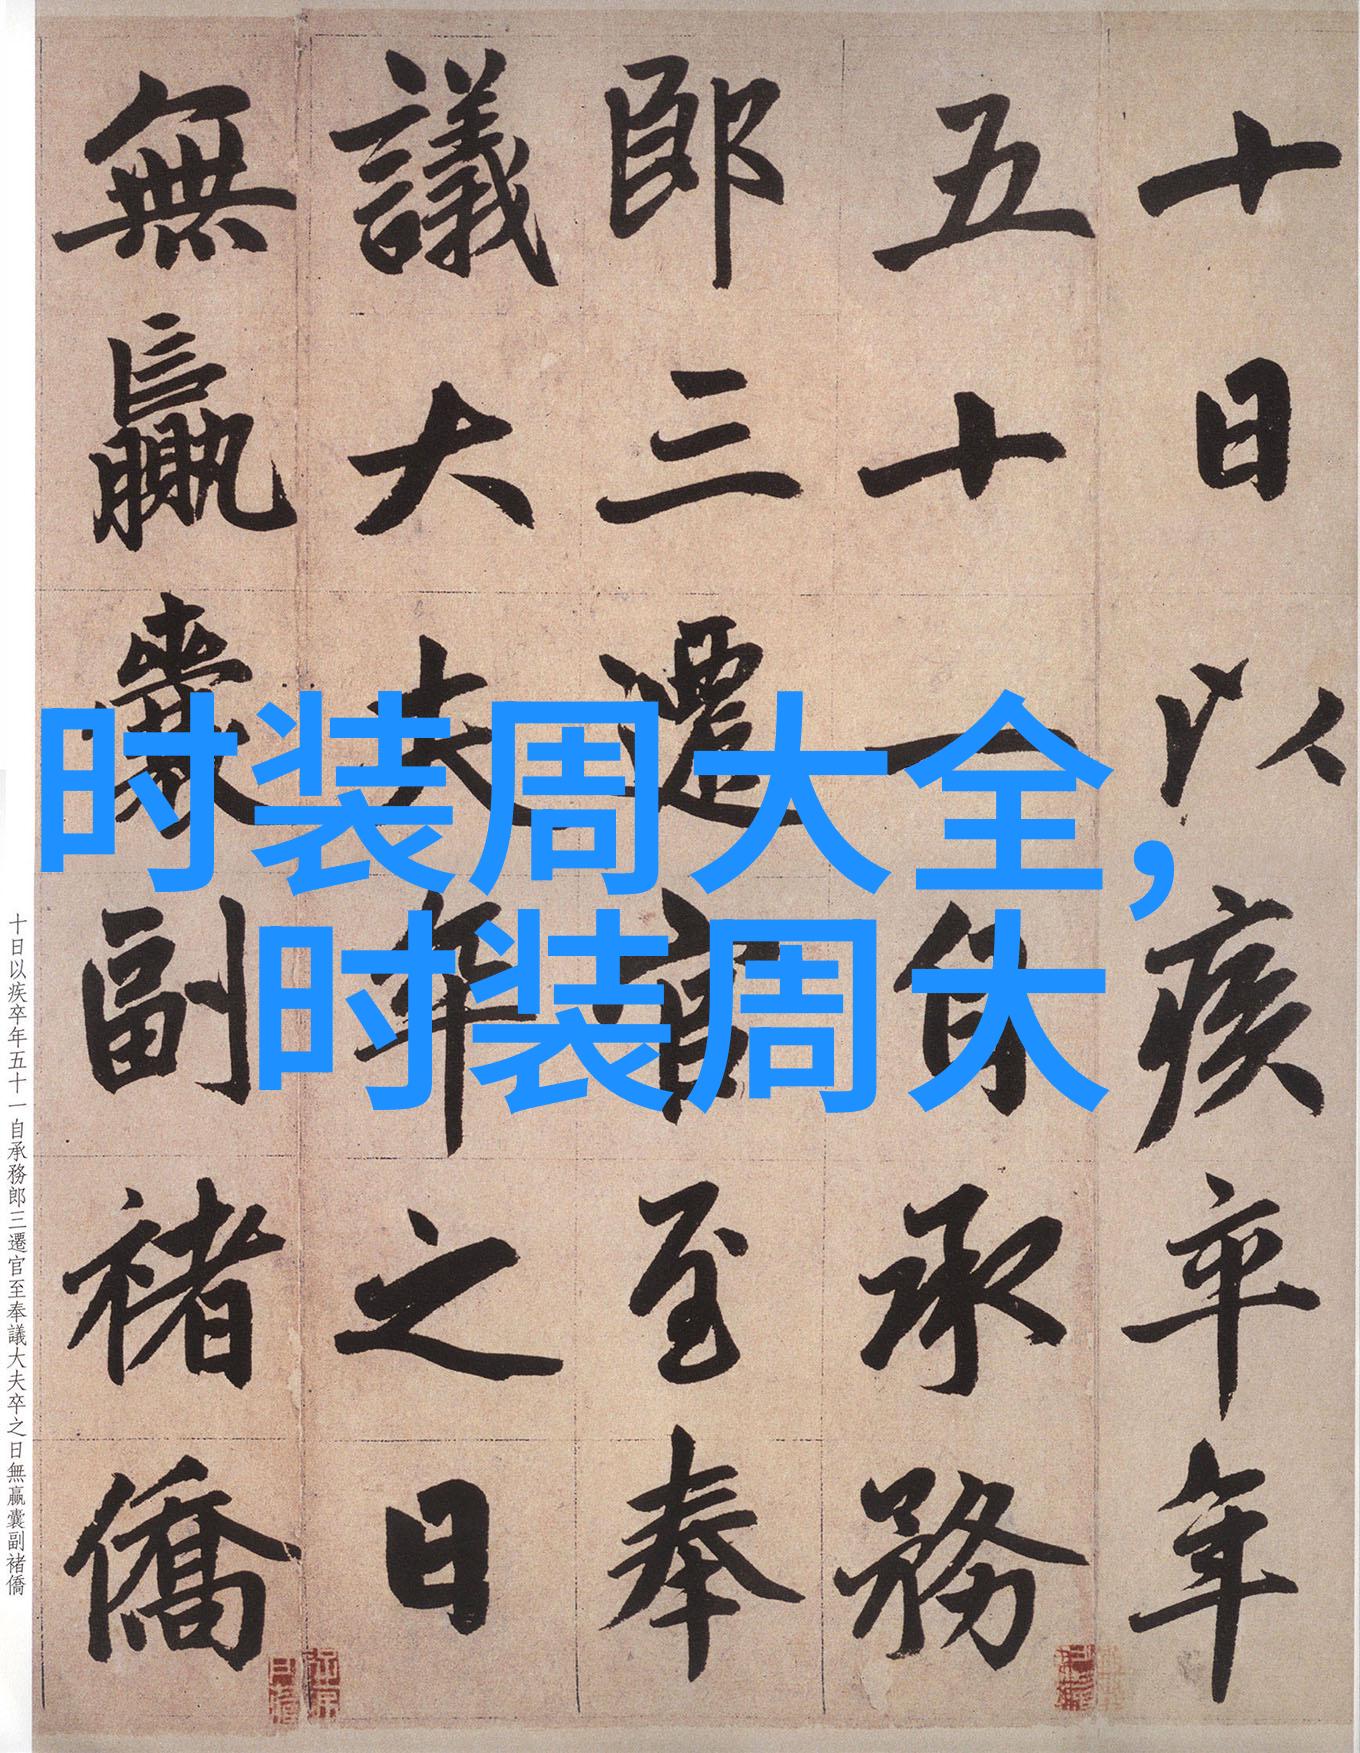 十日以疾卒年
五十一自承務
郎三遷官至奉
議大夫卒之日
無贏囊副褚僑
时装周大全，
时装周大
十日以疾卒年五十一自承務郎三遷官至奉議大夫卒之日無贏囊副褚僑